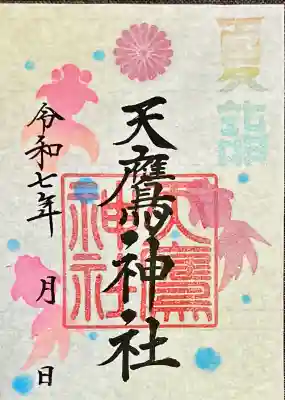 夏詣
天鷹神社
天鷹
神社
令和七年 月 日